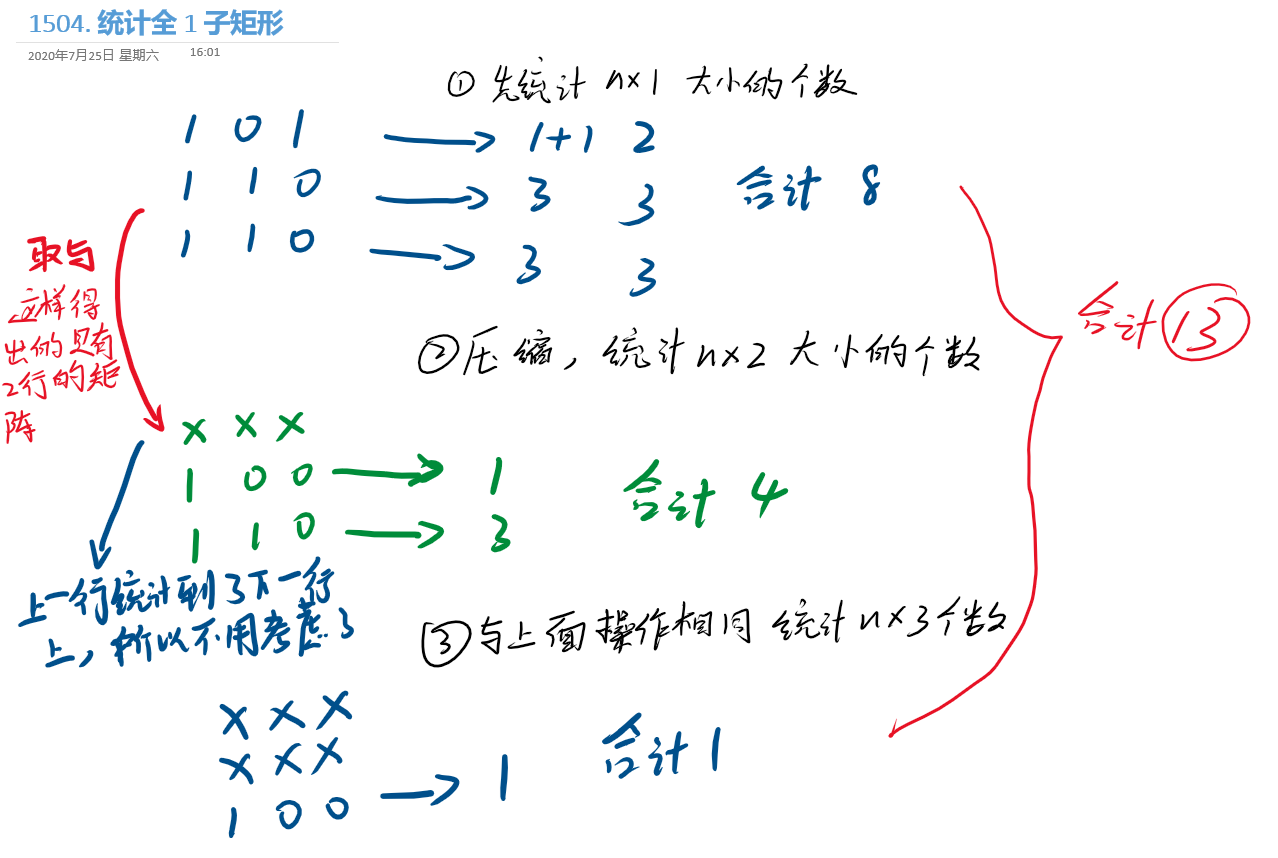 1504. 统计全 1 子矩形
2020年7月25日 星期六 16:01
① 先统计 n×1 大小的个数
1 0 1 → 1+1 2
1 1 0 → 3 3 合计 8
1 1 0 → 3 3
取与
这样得
出的只有
2行的矩
阵
合计 13
② 压缩，统计 n×2 大小的个数
x x x
1 0 0 → 1 合计 4
1 1 0 → 3
上一行统计到了下一行
上，所以不用考虑了
③ 与上面操作相同 统计 n×3 个数
x x x
x x x 合计 1
1 0 0 → 1